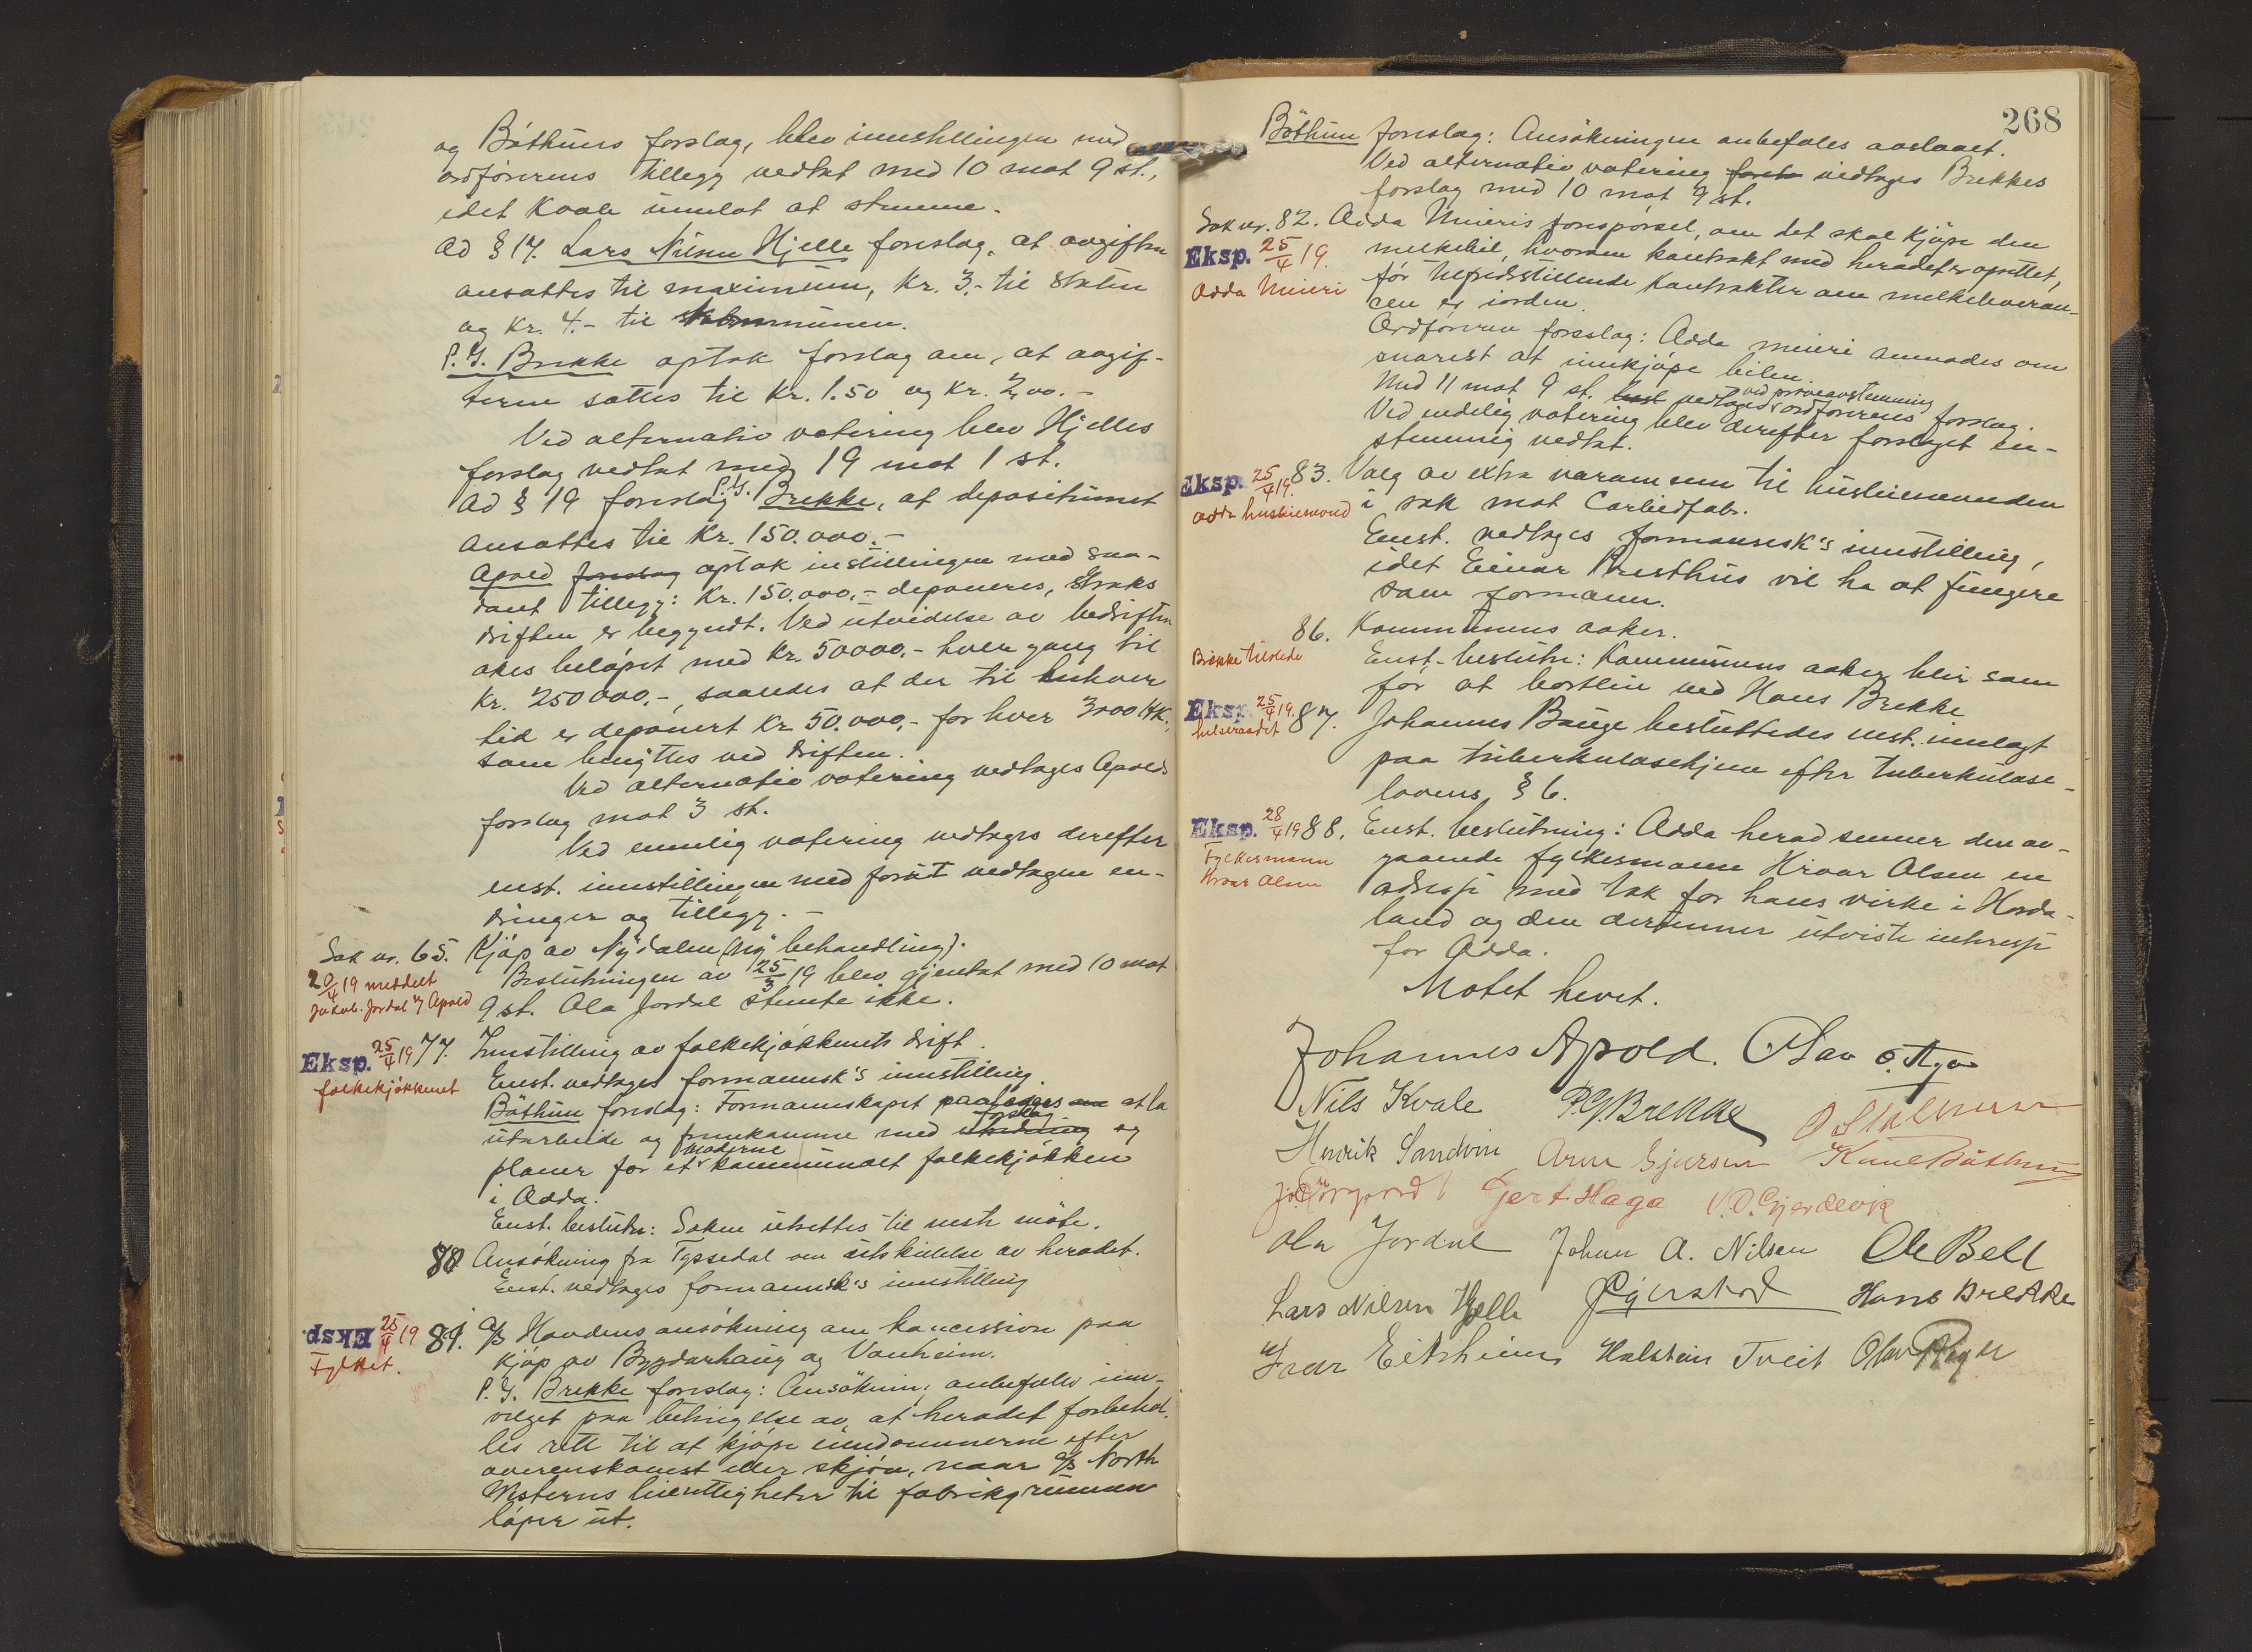 og Báthuns forslag, blev innstillingen med
ordførerens tillegg vedtat med 10 mot 9 st.,
idet Kvale unnlot at stemme.
Ad § 17. Lars Nilsen Hjelle foreslog, at avgiften
ansattes til maximum, Kr. 3.- til staten
og Kr. 4.- til kommunen.
P. G. Brekke optok forslag om, at avgif-
terne sattes til Kr. 1.50 og Kr. 2,00.-
Ved alternativ votering blev Hjelles
forslag vedtat med 19 mot 1 st.
Ad § 19 foreslog P. G. Brekke, at depositumet
ansattes til Kr. 150.000.-
Apold foreslog optok instillingen med saa-
dant tillegg: Kr. 150.000,- deponeres, straks
driften er begyndt. Ved utvidelse av bedriften
økes beløpet med Kr. 50000.- hver gang til
Kr. 250000.-, saaledes at der til enhver
tid er deponert Kr. 50.000,- for hver 3000 HK,
som benyttes ved driften.
Ved alternativ votering vedtages Apolds
forslag mot 3 st.
Ved ennelig votering vedtages derefter
enst. innstillingen med forut vedtagne en-
dringer og tillegg.-
Sak nr. 65. Kjøp av Nydalen (Ny behandling).
20/4 19 meddelt
Jakob Jordal & Apold
Beslutningen av 25/3 19 blev gjentat med 10 mot
9 st. Ola Jordal stemte ikke.
Eksp. 25/4 19
folkekjøkkenet
77. Innstilling av folkekjøkkenets drift.
Enst. vedtages formannsk's innstilling.
Báthun foreslog: Formannskapet paalægges om at la
utarbeide og fremkomme med utredning forslag og
planer for et moderne kommunalt folkekjøkken
i Odda.
Enst. beslutn: Saken utsettes til neste møte.
80 Ansøkning fra Tyssedal om utskillelse av heradet.
Enst. vedtages formannsk's innstilling
Eksp. 25/4 19
Fylket.
81. A/S Havdens ansøkning om koncession paa
kjøp av Bygdarhaug og Vanheim.
P. G. Brekke foreslog: Ansøkning anbefales inn-
vilget paa betingelse av, at heradet forbehol-
les rett til at kjøpe eiendommerne efter
overenskomst eller skjøn, naar A/S North
Westerns leierettigheter til fabrikgrunnen
løper ut.
268
Báthun foreslog: Ansøkningen anbefales avslaaet.
Ved alternativ votering vedtages Brekkes
forslag med 10 mot 9 st.
Sak nr. 82. Odda Meieris forespørsel, om det skal kjøpe den
Eksp. 25/4 19.
Odda Meieri
melkebil, hvorom kontrakt med heradet er oprettet,
før tilfredsstillende kontrakter om melkeleveran-
cen er iorden.
Ordføreren foreslog: Odda meieri anmodes om
snarest at innkjøpe bilen.
Med 11 mot 9 st. vedtages ved prøveavstemming ordførerens forslag.
Ved endelig votering blev derefter forslaget en-
stemmig vedtat.
Eksp. 25/4 19.
Odda husleienevnd
83. Valg av extra varamenn til husleienevnden
i sak mot Carbidfab.
Enst. vedtages formannsk's innstilling,
idet Einar Presthus vil ha at fungere
som formann.
86. Kommunens aaker.
Brekke tilstede
Enst. beslutn: Kommunens aaker blir som
før at bortleie ved Hans Brekke
Eksp. 25/4 19.
helseraadet
87. Johannes Bauge besluttedes enst. innlagt
paa tuberkulosehjem efter tuberkulose-
lovens § 6.
Eksp. 28/4 19
Fylkesmann
Hroar Olsen
88. Enst. beslutning: Odda herad sender den av-
gaaende fylkesmann Hroar Olsen en
adresse med tak for hans virke i Horda-
land og den derunner utviste interesse
for Odda.
Møtet hevet.
Johannes Apold. Olav O. Aga
Nils Kvale P.G. Brekke
Henrik Sandvin Arne Gjersen Knut Báthun
Gert Haga N. O. Gjerdevik
Ola Jordal Johan A. Nilsen Ole Bell
Lars Nilsen Hjelle Hans Brekke
Ivar Eitrheim Halstein Tveit